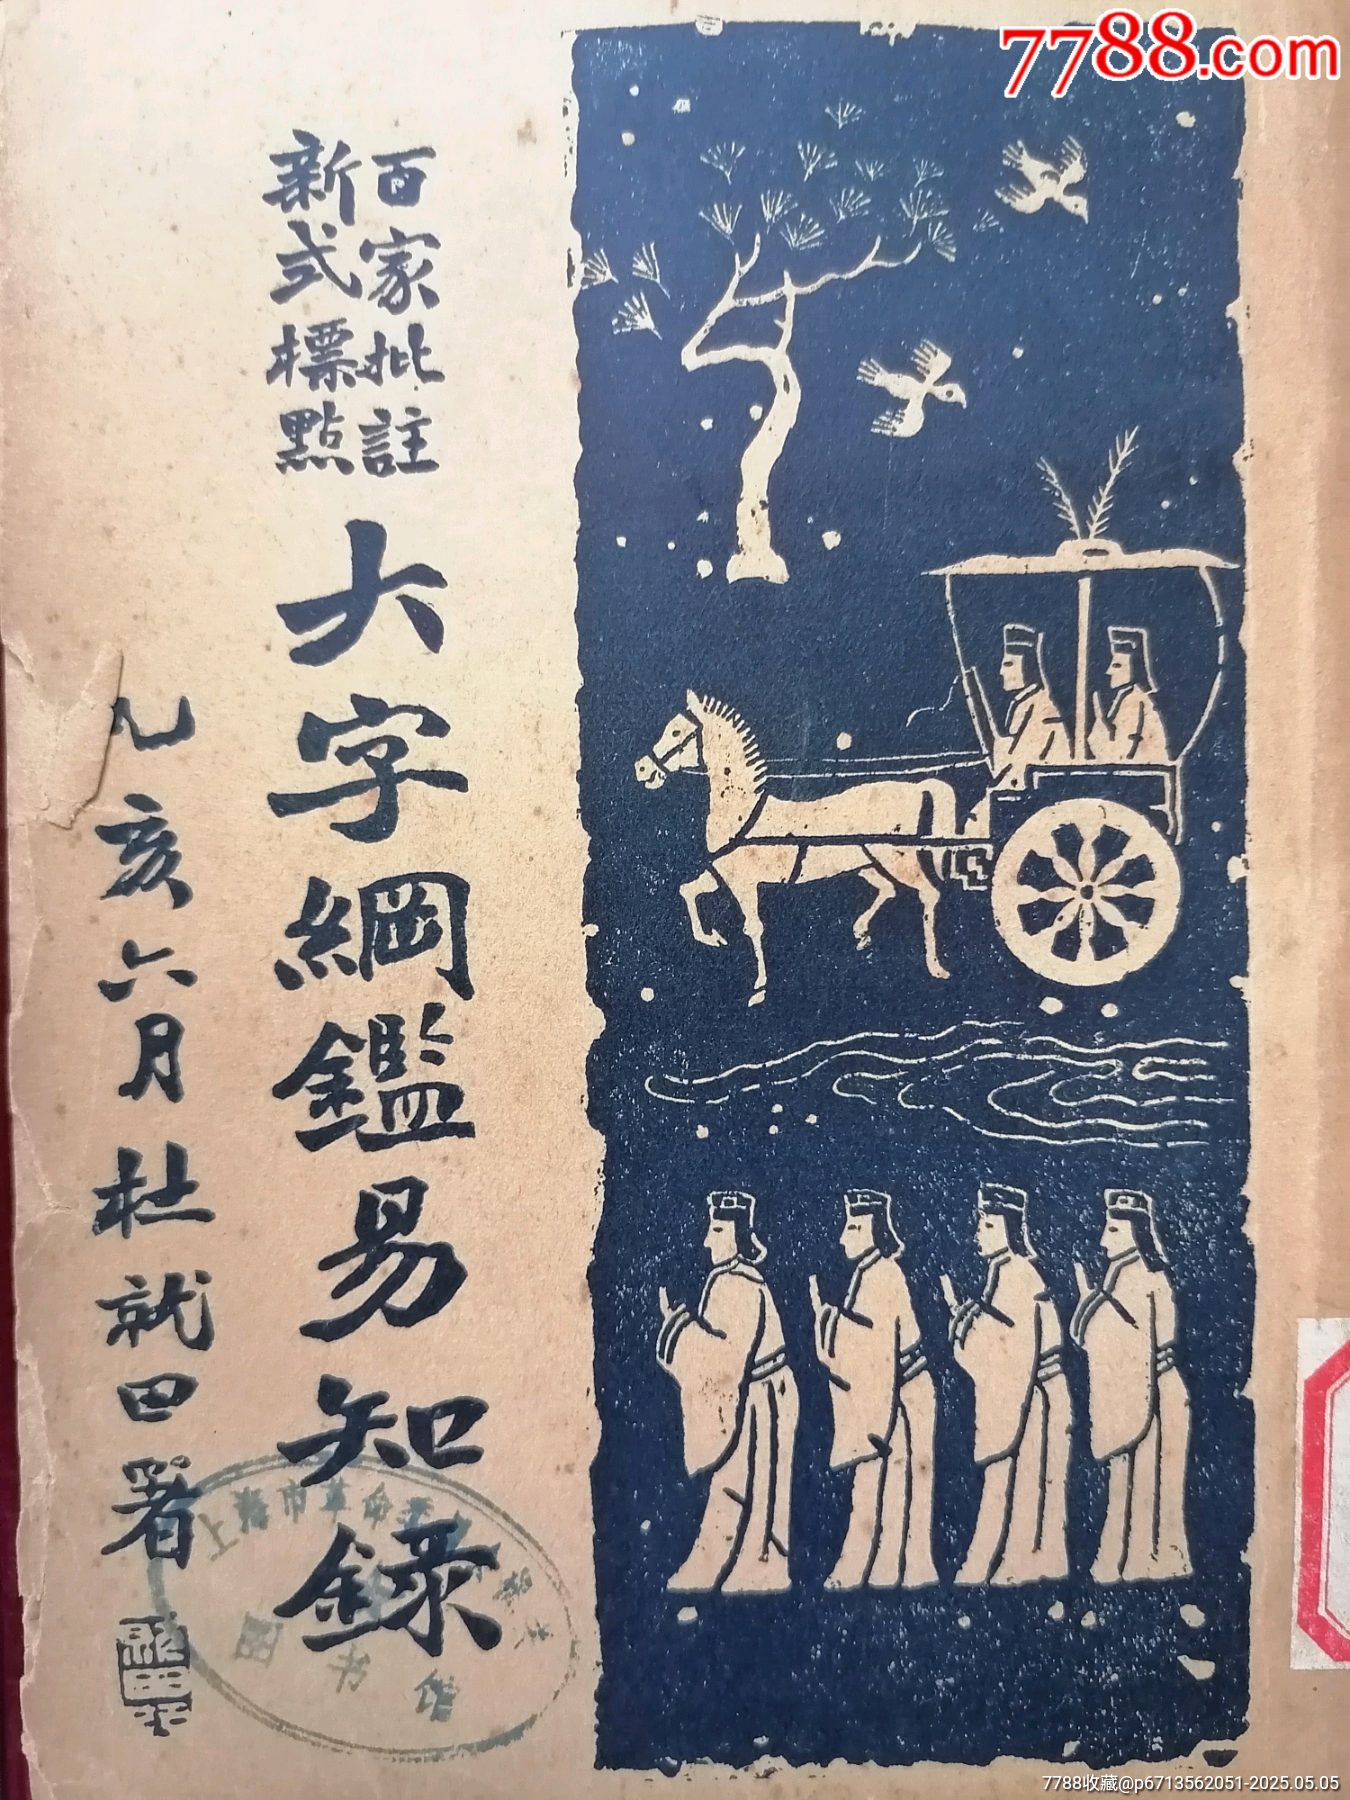 7788.com
百家批註
新式標點
大字綱鑑易知錄
亥六月杜就田署
上海市革命
图书馆
7788收藏@p6713562051-2025.05.05